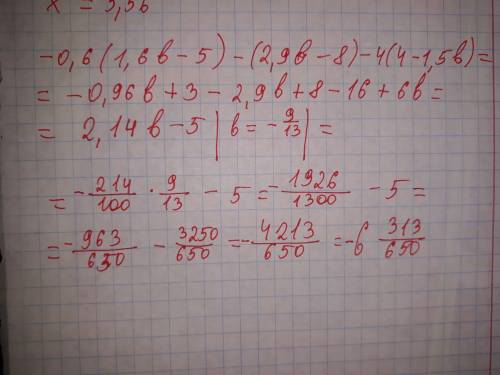 x = 3,56
-0,6(1,6в-5)-(2,9в-8)-4(4-1,5в)=
= -0,96в+3-2,9в+8-16+6в=
= 2,14в-5 | в=-9/13 | =
= -214/100 · 9/13 - 5 = -1926/1300 - 5 =
= -963/650 - 3250/650 = -4213/650 = -6 313/650